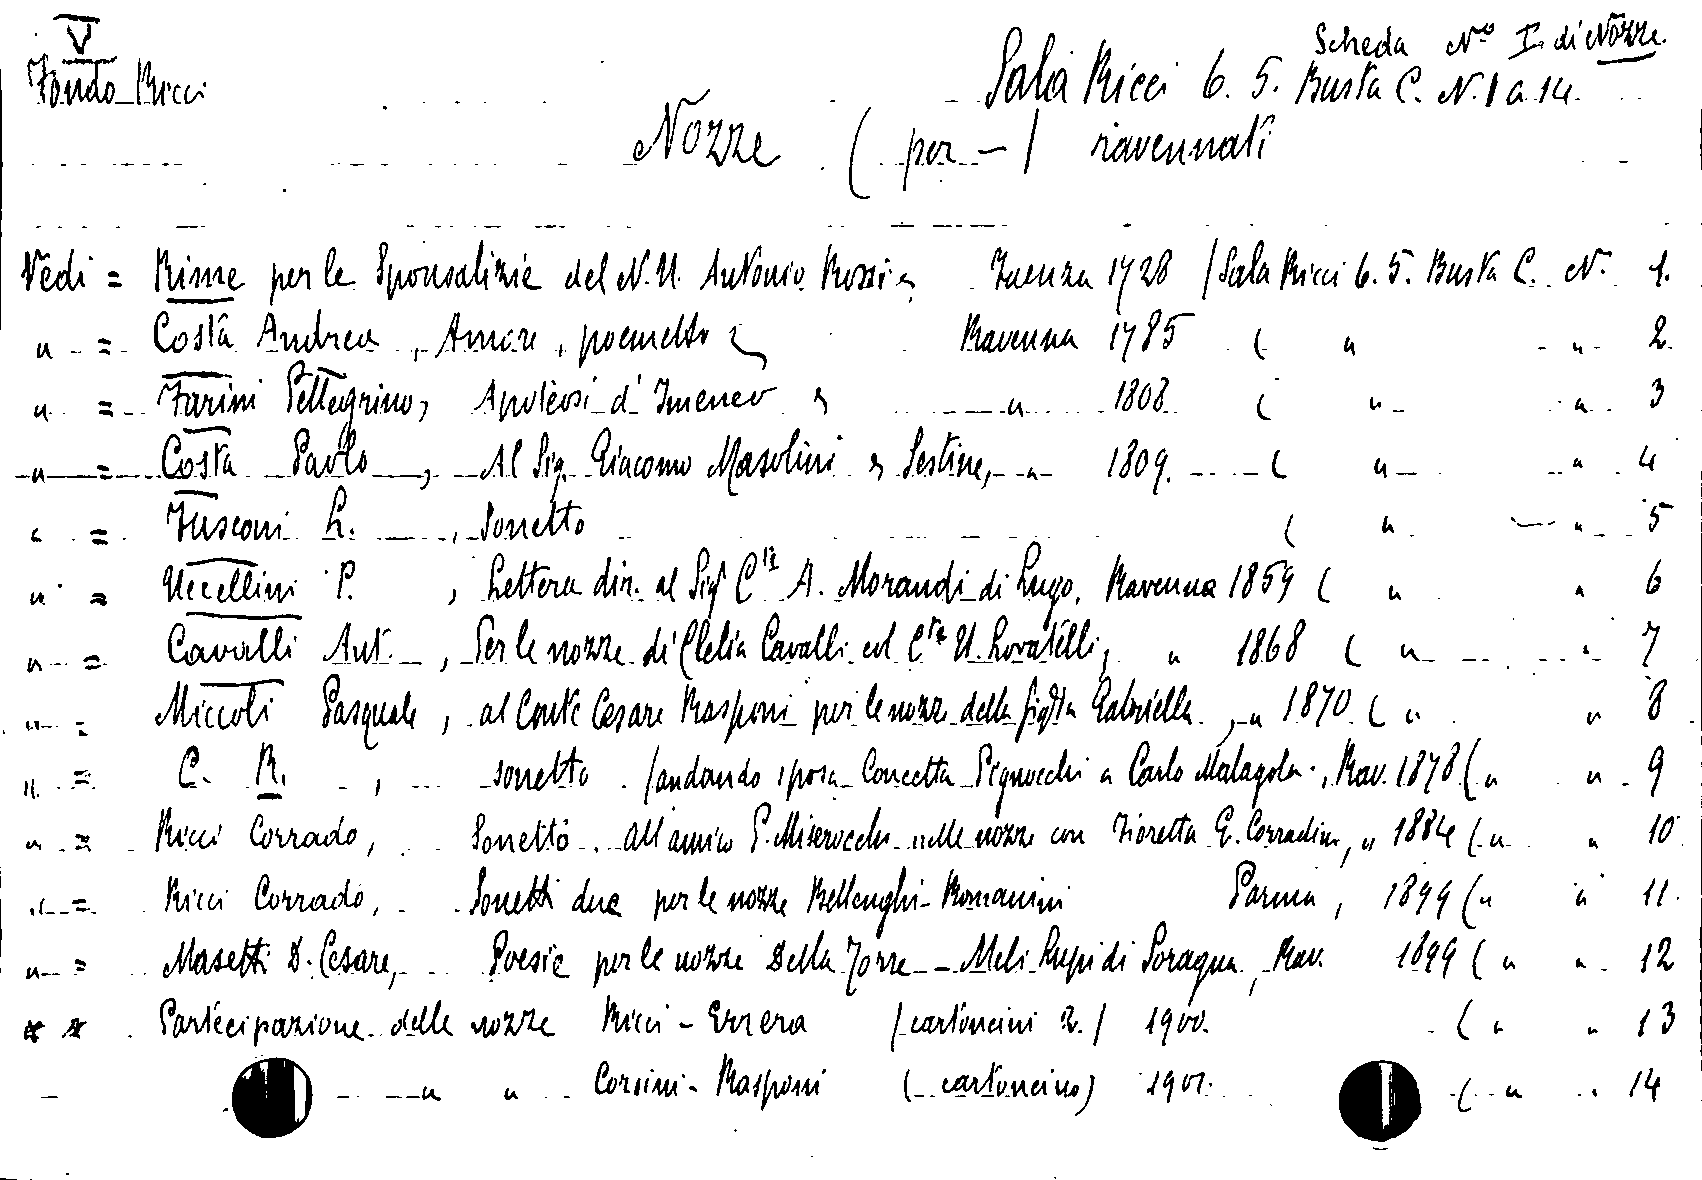 V
Scheda Nº I. di Nozze.
Fondo Ricci
Sala Ricci 6. 5. Busta C. N. 1 a 14.
Nozze ( per - ) ravennati
Vedi = Rime per le Sponsalizie del N. U. Antonio Rossi Faenza 1728 (Sala Ricci 6. 5. Busta C. N. 1.
" = Costa Andrea, Amore, poemetto Ravenna 1785 ( " " 2.
" = Farini Pellegrino, Apoteosi d' Imeneo " 1808 ( " " 3
" = Costa Paolo, Al Sig. Giacomo Masolini Sestine, " 1809. ( " " 4
" = Fusconi L., Sonetto ( " " 5
" = Uccellini P., Lettera dir. al Sigr Cte A. Morandi di Lugo, Ravenna 1859 ( " " 6
" = Cavalli Ant., Per le nozze di Clelia Cavalli col Cte U. Lovatelli, " 1868 ( " " 7
" = Miccoli Pasquale, al Conte Cesare Rasponi per le nozze della figlia Gabriella, " 1870 ( " " 8
" = C. R., sonetto (andando sposa Concetta Pignocchi a Carlo Malagola., Rav. 1878 ( " " 9
" = Ricci Corrado, Sonetto. all'amico P. Miserocchi nelle nozze con Fioretta G. Corradini, " 1884 ( " " 10
" = Ricci Corrado, Sonetti due per le nozze Bellenghi-Romanini Parma, 1899 ( " " 11.
" = Masetti D. Cesare, Poesie per le nozze Della Torre - Meli Lupi di Soragna, Rav. 1899 ( " " 12
Partecipazione delle nozze Ricci - Errera (cartoncini 2.) 1900. ( " " 13
" " Corsini - Rasponi (cartoncino) 1901. ( " " 14